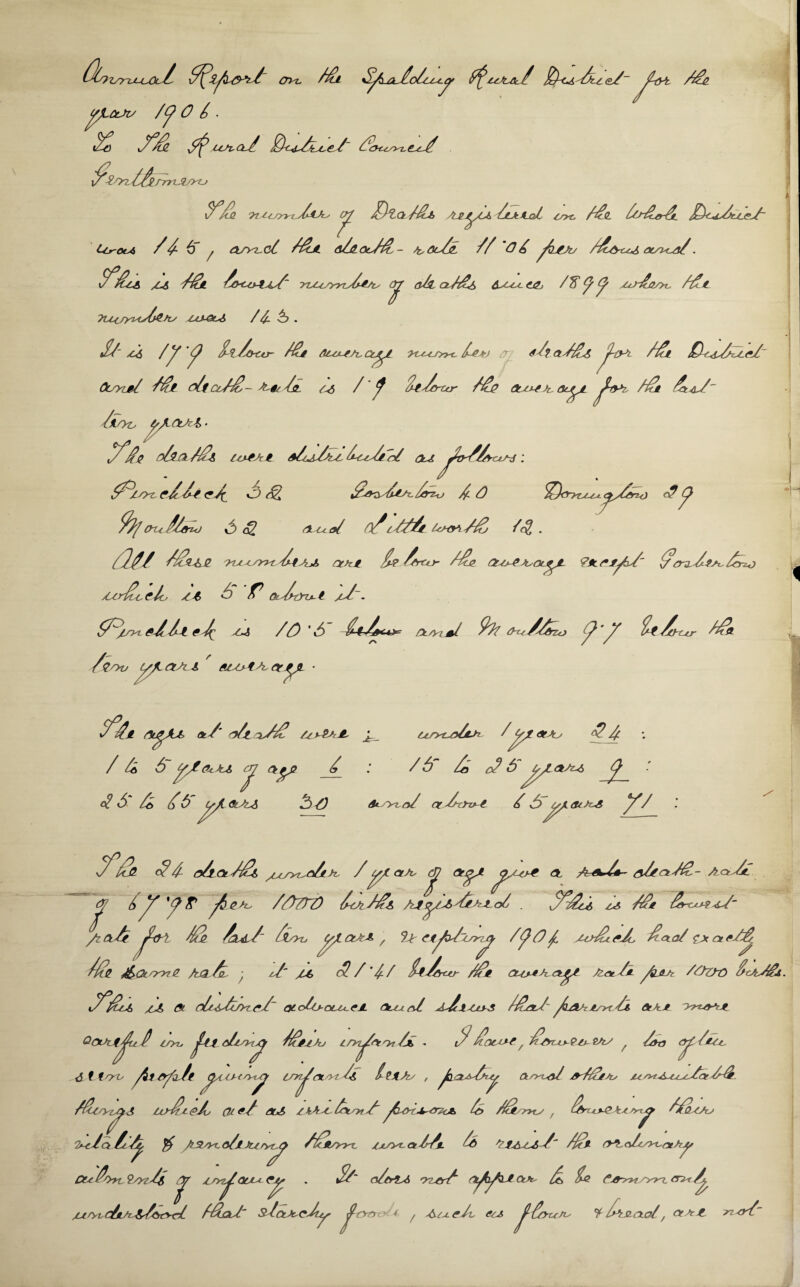 Annual Report on the Spalding Rural District for the
year 1906.
To The Rural District Council
Gentlemen
The number of Deaths registered in the whole District
was 145, and the death-rate 11.06 per thousand.
This is the lowest number of deaths since 1899 when the
number was 143.
It is 17.9 below the average number of deaths for the District
and the death-rate is 1.9 below the average for the last
ten years.
The deaths were distributed as follows:
Pinchbeck 32 Donington 40
Moulton 32 and
All these numbers are below the average except
which is above it.
Pinchbeck is 10.5 below and Moulton 9.7 below the
ten years average.
The ages at death were under 1 year 24 :
1 to 5 years of age 6 : 15 to 25 years 9 :
25 to 65 years 30 and above 65 years 71 :
The 24 deaths under 1 year of age give a death-rate
of 67.98 per 1000 births registered. This is the lowest
rate for the last ten years, excepting 1904 which had exactly
the same rate; it is 21.41 below the average rate per 1000 births.
This is a abatement and shews that parents are more
careful in feeding their infants. I have, however, too often
seen people giving infants beer, pastry and other unsuitable
things which act as irritant poisons to them, lowering their
vitality & rendering them unable to resist the ordinary
ailments of infancy. It does not appear to be commonly
understood that starchy foods, such as flour & bread, are not